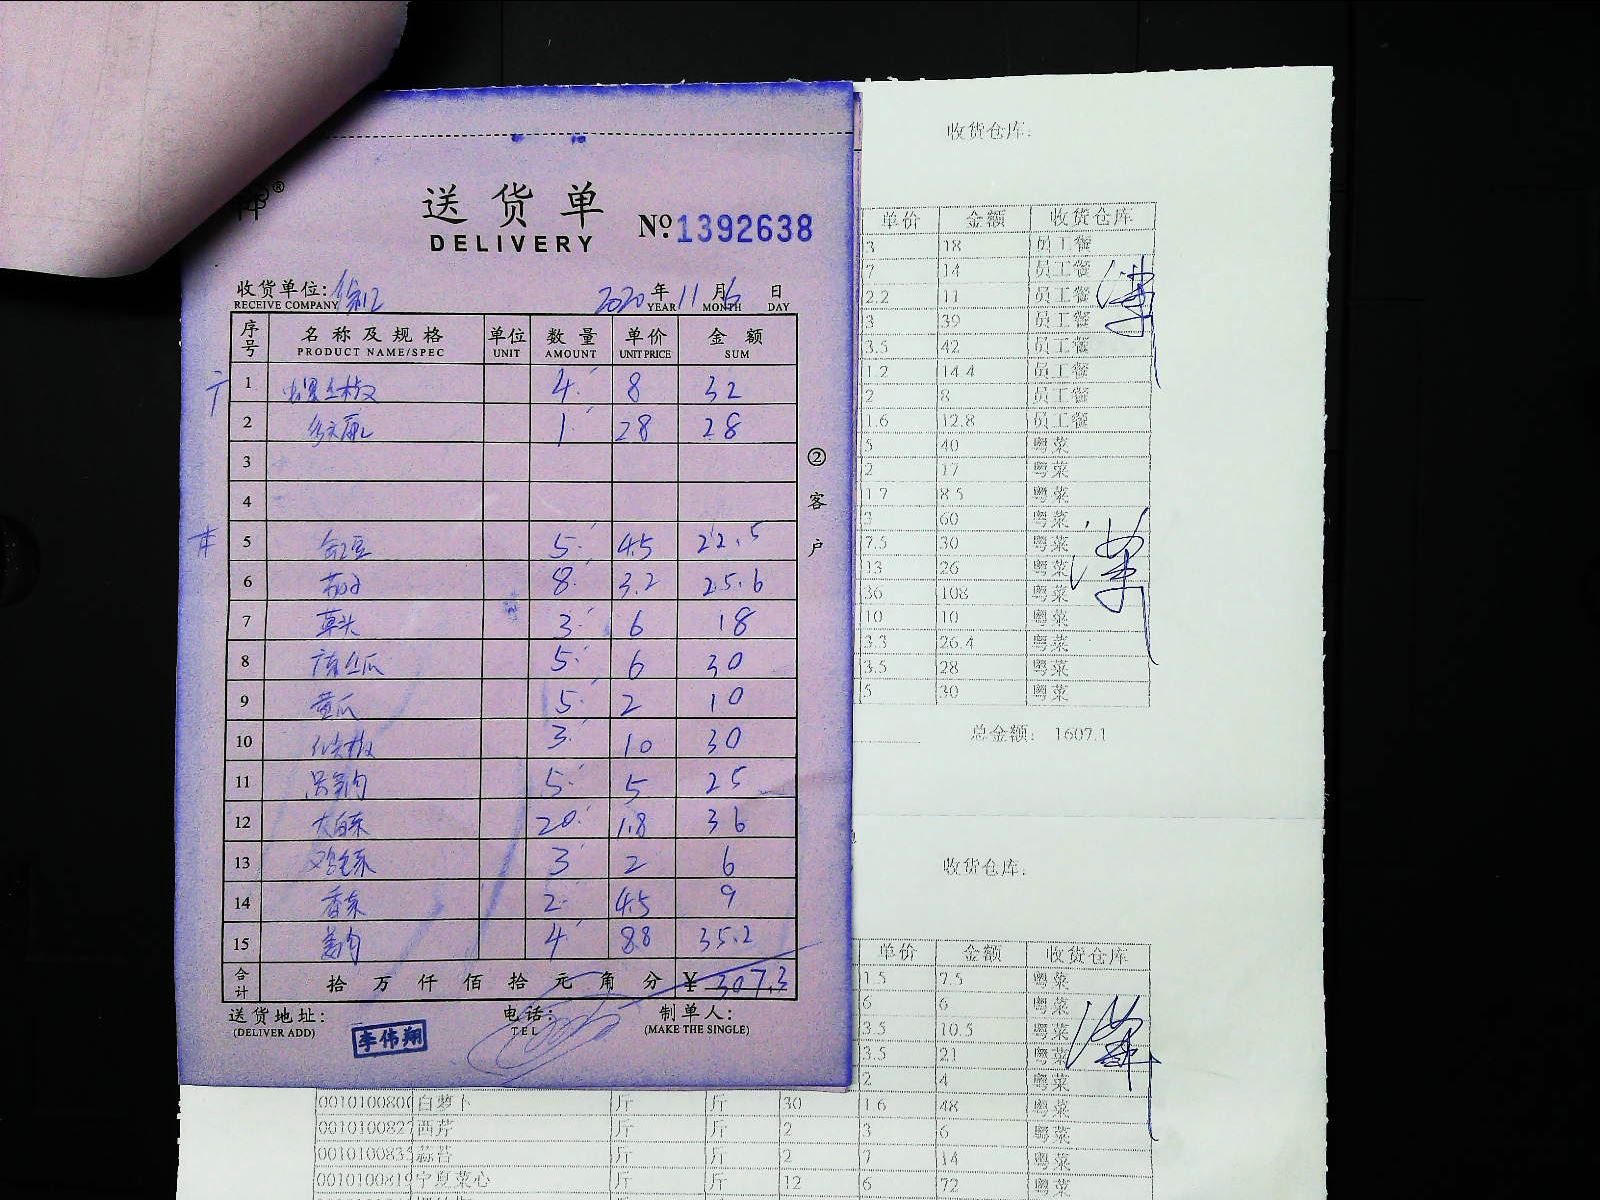 送货单
DELIVERY
№ 1392638
收货单位:
RECEIVE COMPANY
2020 年 11 月 6 日
YEAR MONTH DAY
序号 名称及规格 单位 数量 单价 金额
PRODUCT NAME/SPEC UNIT AMOUNT UNIT PRICE SUM
1 螺丝椒 4 8 32
2 1 28 28
3
4
5 豇豆 5 4.5 22.5
6 茄子 8 3.2 25.6
7 草头 3 6 18
8 5 6 30
9 黄瓜 5 2 10
10 3 10 30
11 5 5 25
12 大白菜 20 1.8 36
13 鸡毛菜 3 2 6
14 香菜 2 4.5 9
15 4 8.8 35.2
合计 拾 万 仟 佰 拾 元 角 分 ¥ 307.3
送货地址: 电话: 制单人:
(DELIVER ADD) TEL (MAKE THE SINGLE)
李伟翔
② 客户
收货仓库:
单价 金额 收货仓库
3 18 员工餐
7 14 员工餐
2.2 11 员工餐
3 39 员工餐
3.5 42 员工餐
1.2 14.4 员工餐
2 8 员工餐
1.6 12.8 员工餐
5 40 粤菜
2 17 粤菜
1.7 8.5 粤菜
3 60 粤菜
7.5 30 粤菜
13 26 粤菜
36 108 粤菜
10 10 粤菜
3.3 26.4 粤菜
3.5 28 粤菜
5 30 粤菜
总金额: 1607.1
收货仓库:
单价 金额 收货仓库
1.5 7.5 粤菜
6 6 粤菜
3.5 10.5 粤菜
3.5 21 粤菜
2 4 粤菜
0010100800 白萝卜 斤 斤 30 1.6 48 粤菜
001010082 西芹 斤 斤 2 3 6 粤菜
001010083 蒜苔 斤 斤 2 7 14 粤菜
001010081 宁夏菜心 斤 斤 12 6 72 粤菜